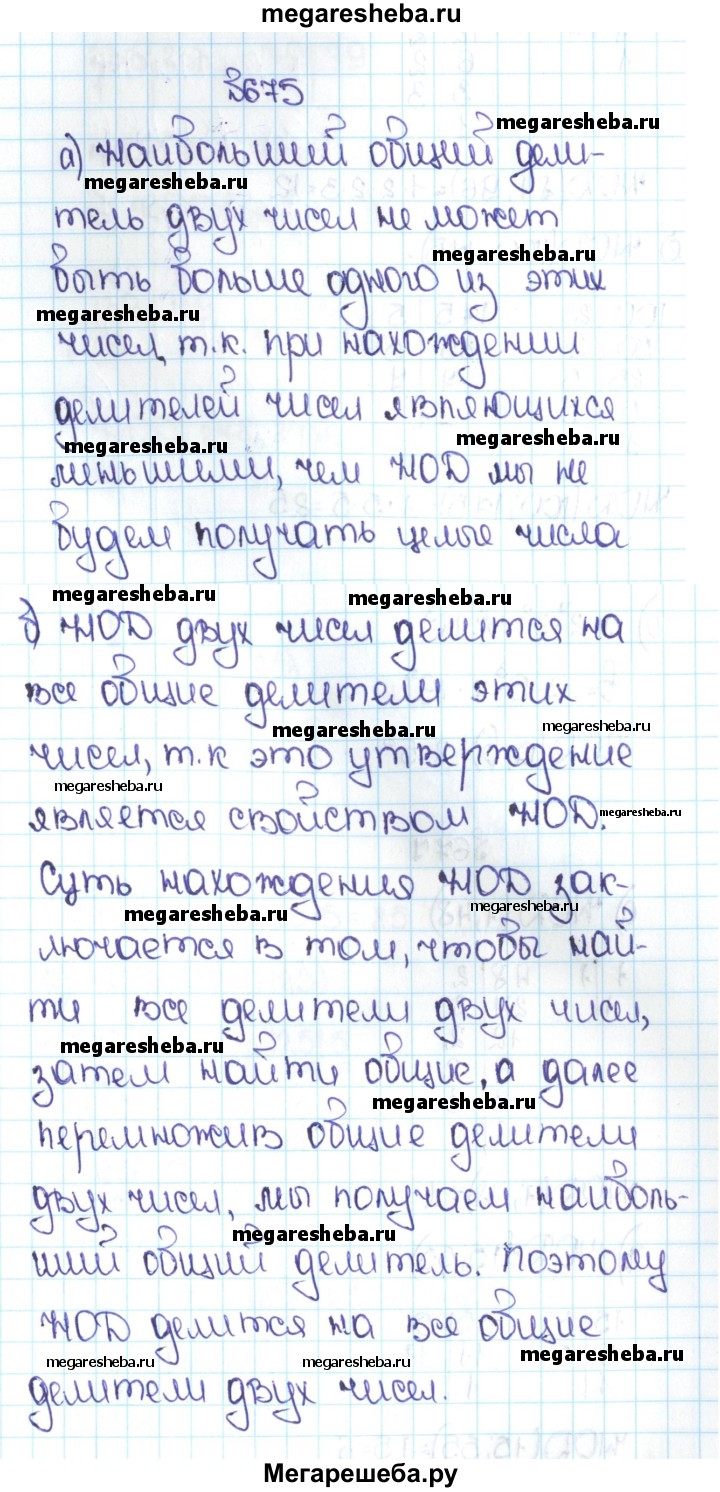 megaresheba.ru
№675
megaresheba.ru
а) Наибольший общий дели-
megaresheba.ru
тель двух чисел не может
megaresheba.ru
быть больше одного из этих
megaresheba.ru
чисел, т.к. при нахождении
делителей чисел являющихся
megaresheba.ru
megaresheba.ru
меньшими, чем НОД мы не
будем получать целые числа
megaresheba.ru
megaresheba.ru
б) НОД двух чисел делится на
все общие делители этих
megaresheba.ru
megaresheba.ru
чисел, т.к это утверждение
megaresheba.ru
является свойством НОД.
megaresheba.ru
Суть нахождения НОД зак-
megaresheba.ru
megaresheba.ru
лючается в том, чтобы най-
ти все делители двух чисел,
megaresheba.ru
затем найти общие, а далее
megaresheba.ru
перемножив общие делители
двух чисел, мы получаем наиболь-
megaresheba.ru
ший общий делитель. Поэтому
НОД делится на все общие
megaresheba.ru
megaresheba.ru
megaresheba.ru
делители двух чисел.
Мегарешеба.ру